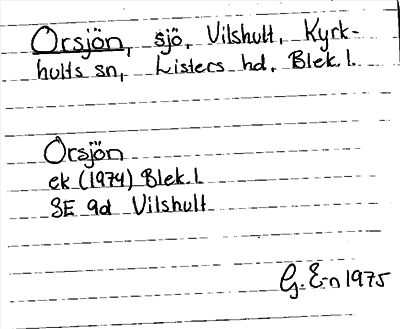 Orsjön, sjö, Vilshult, Kyrk-
hults sn, Listers hd, Blek. l.
Orsjön
ek (1974) Blek. l.
3E 9d Vilshult
G. E-n 1975